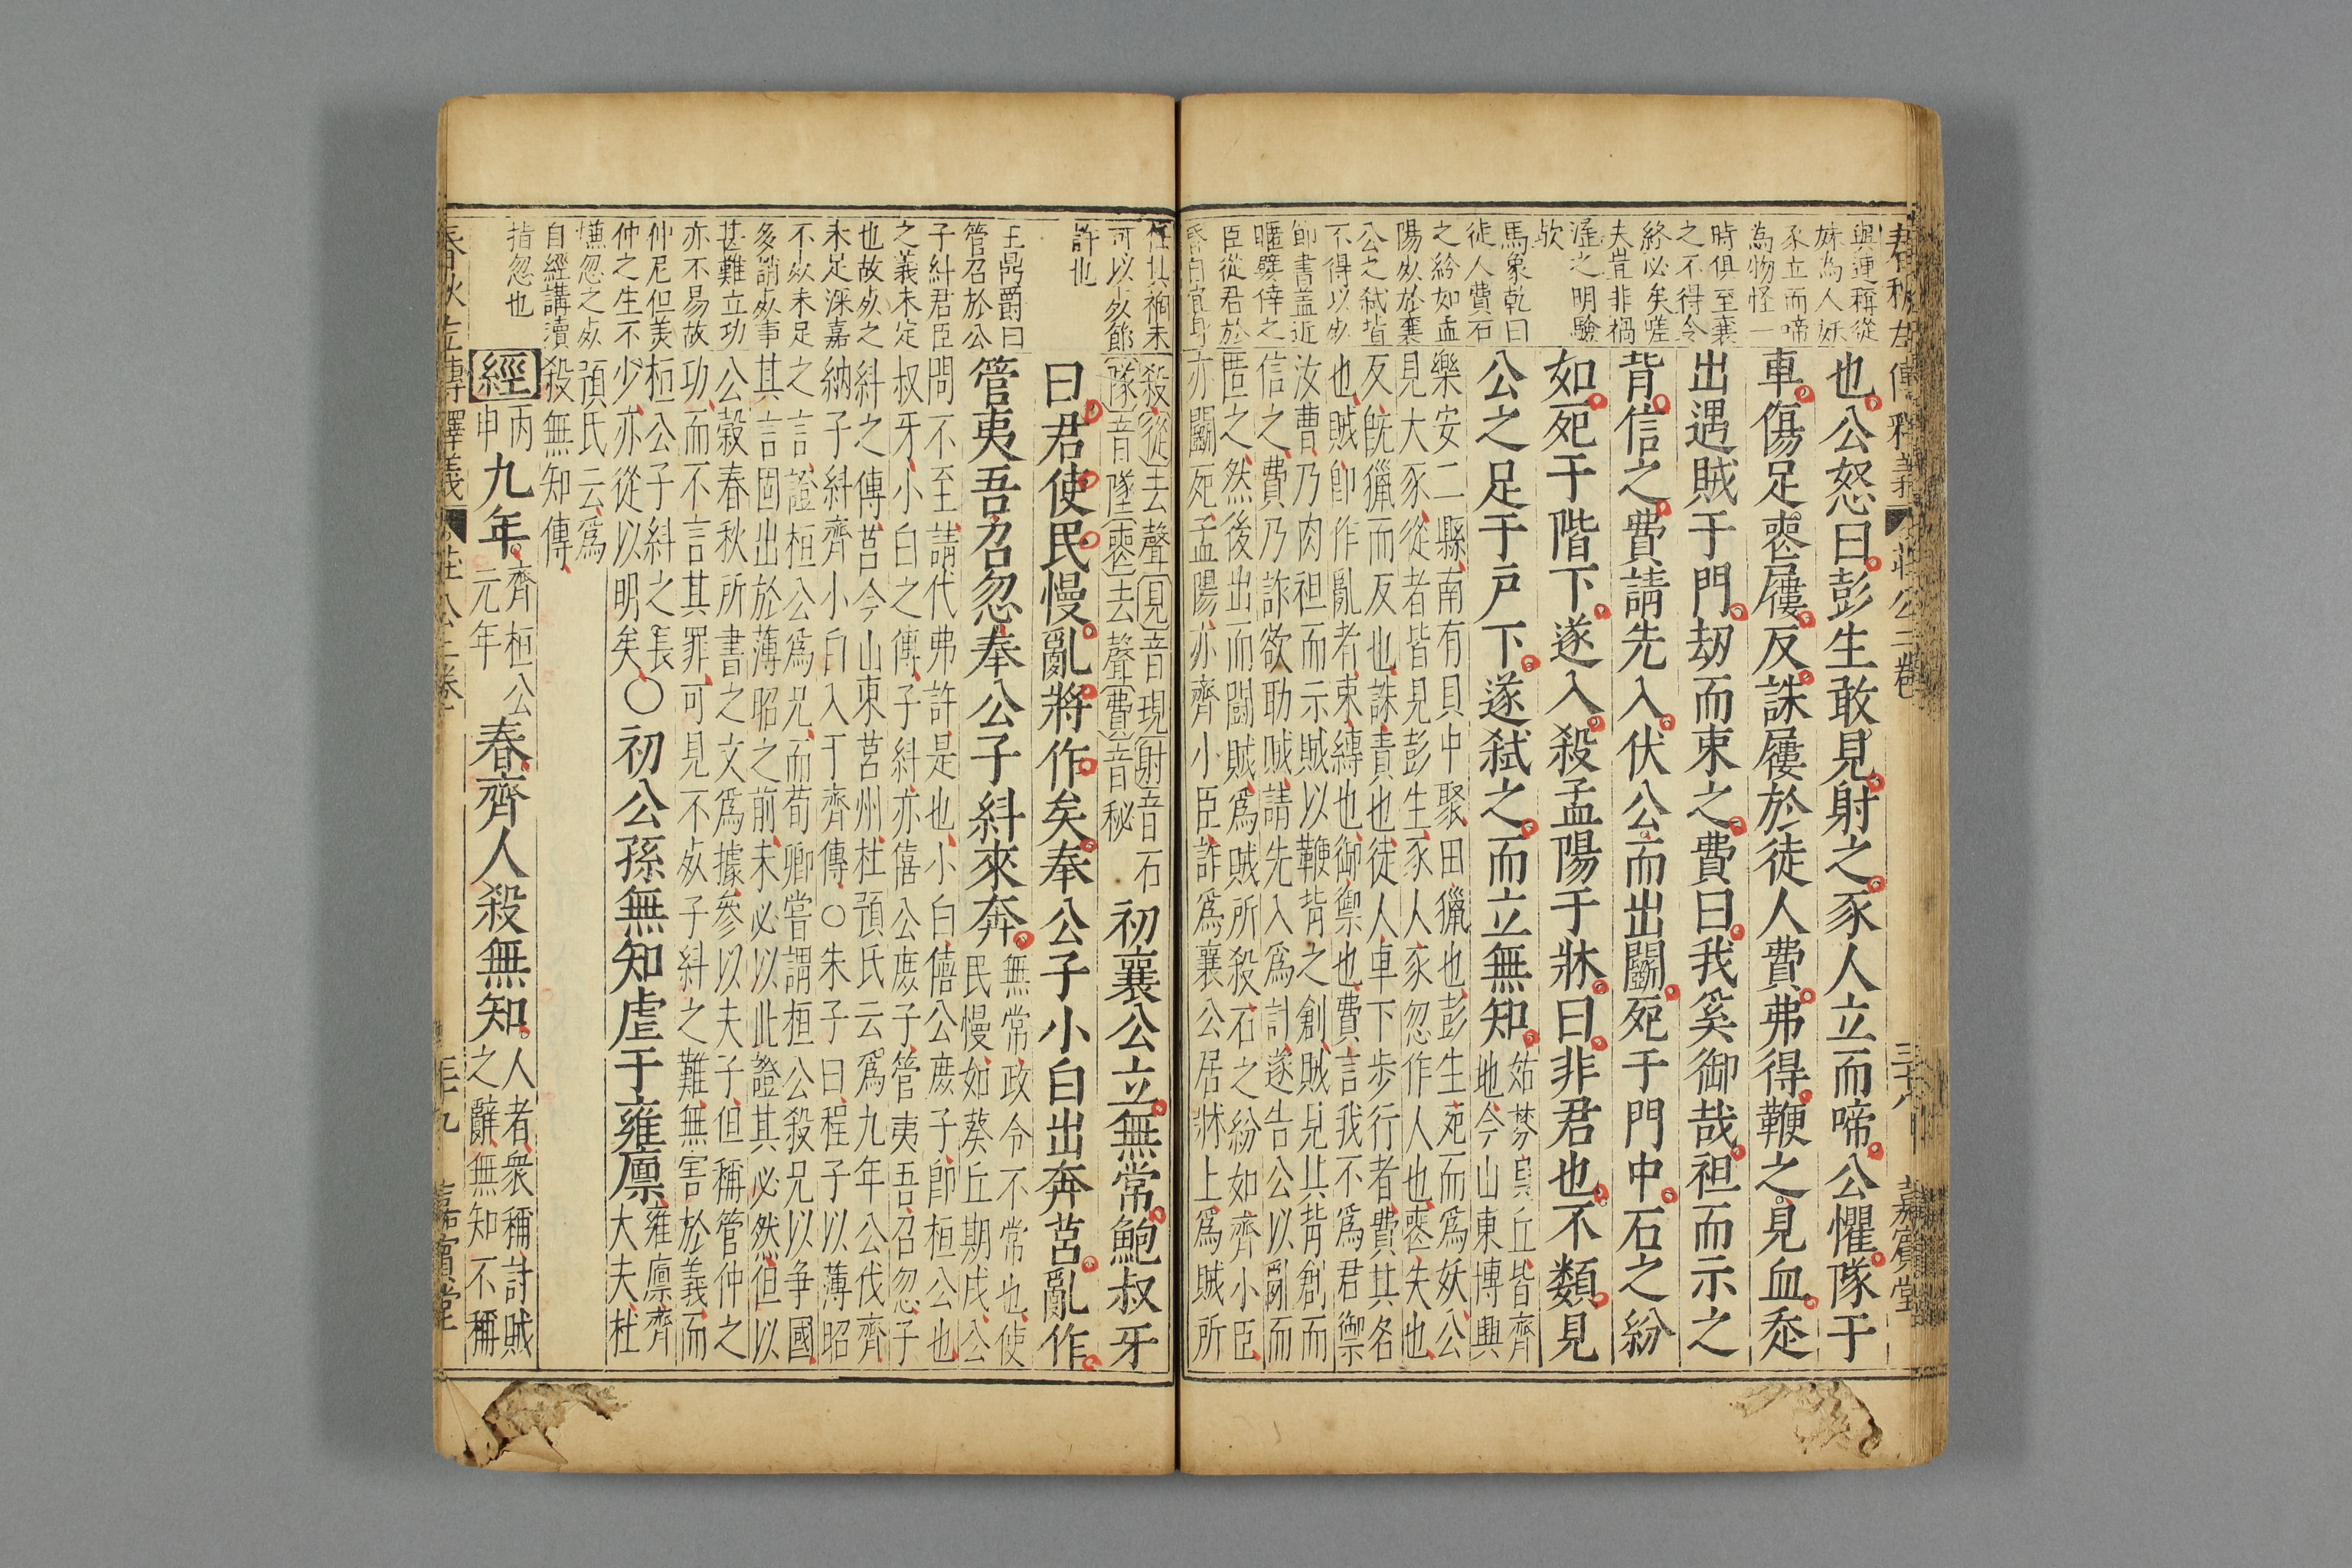 春秋左傳釋義 莊公三卷 三十八 嘉賓堂
與連稱從
妹為人妖
豕立而啼
為物怪一
時俱至襄
之不得令
終必矣嗟
夫豈非禍
滛之明驗
歟
馬象乾曰
徒人費石
之紛如孟
陽死於襄
公之弒皆
不得以死
節書盖近
暱嬖倖之
臣從君於
昏自宜身
也公怒曰彭生敢見射之豕人立而啼公懼隊于
車傷足喪屨反誅屨於徒人費弗得鞭之見血走
出遇賊于門刼而束之費曰我奚御哉袒而示之
背信之費請先入伏公而出鬬死于門中石之紛
如死于階下遂入殺孟陽于牀曰非君也不類見
公之足于戶下遂弑之而立無知
姑棼貝丘皆齊
地今山東博興
樂安二縣南有貝中聚田獵也彭生死而爲妖公
見大豕從者皆見彭生豕人豕忽作人也喪失也
反旣獵而反也誅責也徒人車下歩行者費其名
也賊卽作亂者束縛也御禦也費言我不爲君禦
汝曹乃肉袒而示賊以鞭背之創賊見其背創而
信之費乃詐欲助賊請先入爲計遂告公以亂而
匿之然後出而鬬賊爲賊所殺石之紛如齊小臣
亦鬬死孟陽亦齊小臣詐爲襄公居牀上爲賊所
任其褵未
可以死節
許也
王鼎爵曰
管召於公
子糾君臣
之義未定
也故死之
未足深嘉
不死未足
多誚死事
甚難立功
亦不易故
仲尼但美
仲之生不
嫌忽之死
自經講瀆
指忽也
殺從去聲見音現射音石
隊音墜喪去聲費音秘
初襄公立無常鮑叔牙
曰君使民慢亂將作矣奉公子小白出奔莒亂作
管夷吾召忽奉公子糾來奔
無常政令不常也使
民慢如葵丘期戍公
問不至請代弗許是也小白僖公庶子卽桓公也
叔牙小白之傳子糾亦僖公庶子管夷吾召忽子
糾之傳莒今山東莒州杜預氏云爲九年公伐齊
納子糾齊小白入于齊傳○朱子曰程子以薄昭
之言證桓公爲兄而荀卿嘗謂桓公殺兄以爭國
其言固出於薄昭之前未必以此證其必然但以
公穀春秋所書之文爲據參以夫子但稱管仲之
功而不言其罪可見不死子糾之難無害於義而
桓公子糾之長
少亦從以明矣
○初公孫無知虐于雍廪
雍廪齊
大夫杜
預氏云爲
殺無知傳
經
丙申
九年
齊桓公
元年
春齊人殺無知
人者衆稱討賊
之辭無知不稱
春秋左傳釋義 莊公三卷 三十九 嘉賓堂